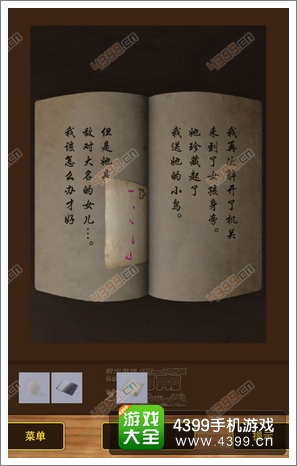 我再次解开了机关
来到了女孩身旁。
她珍藏起了
我送她的小鸟。
但是她是
敌对大名的女儿…。
我该怎么办才好
菜单
游戏
大全
4399手机游戏
www.4399.cn
4399.cn
4399.cn
4399.cn
4399.cn
4399.cn